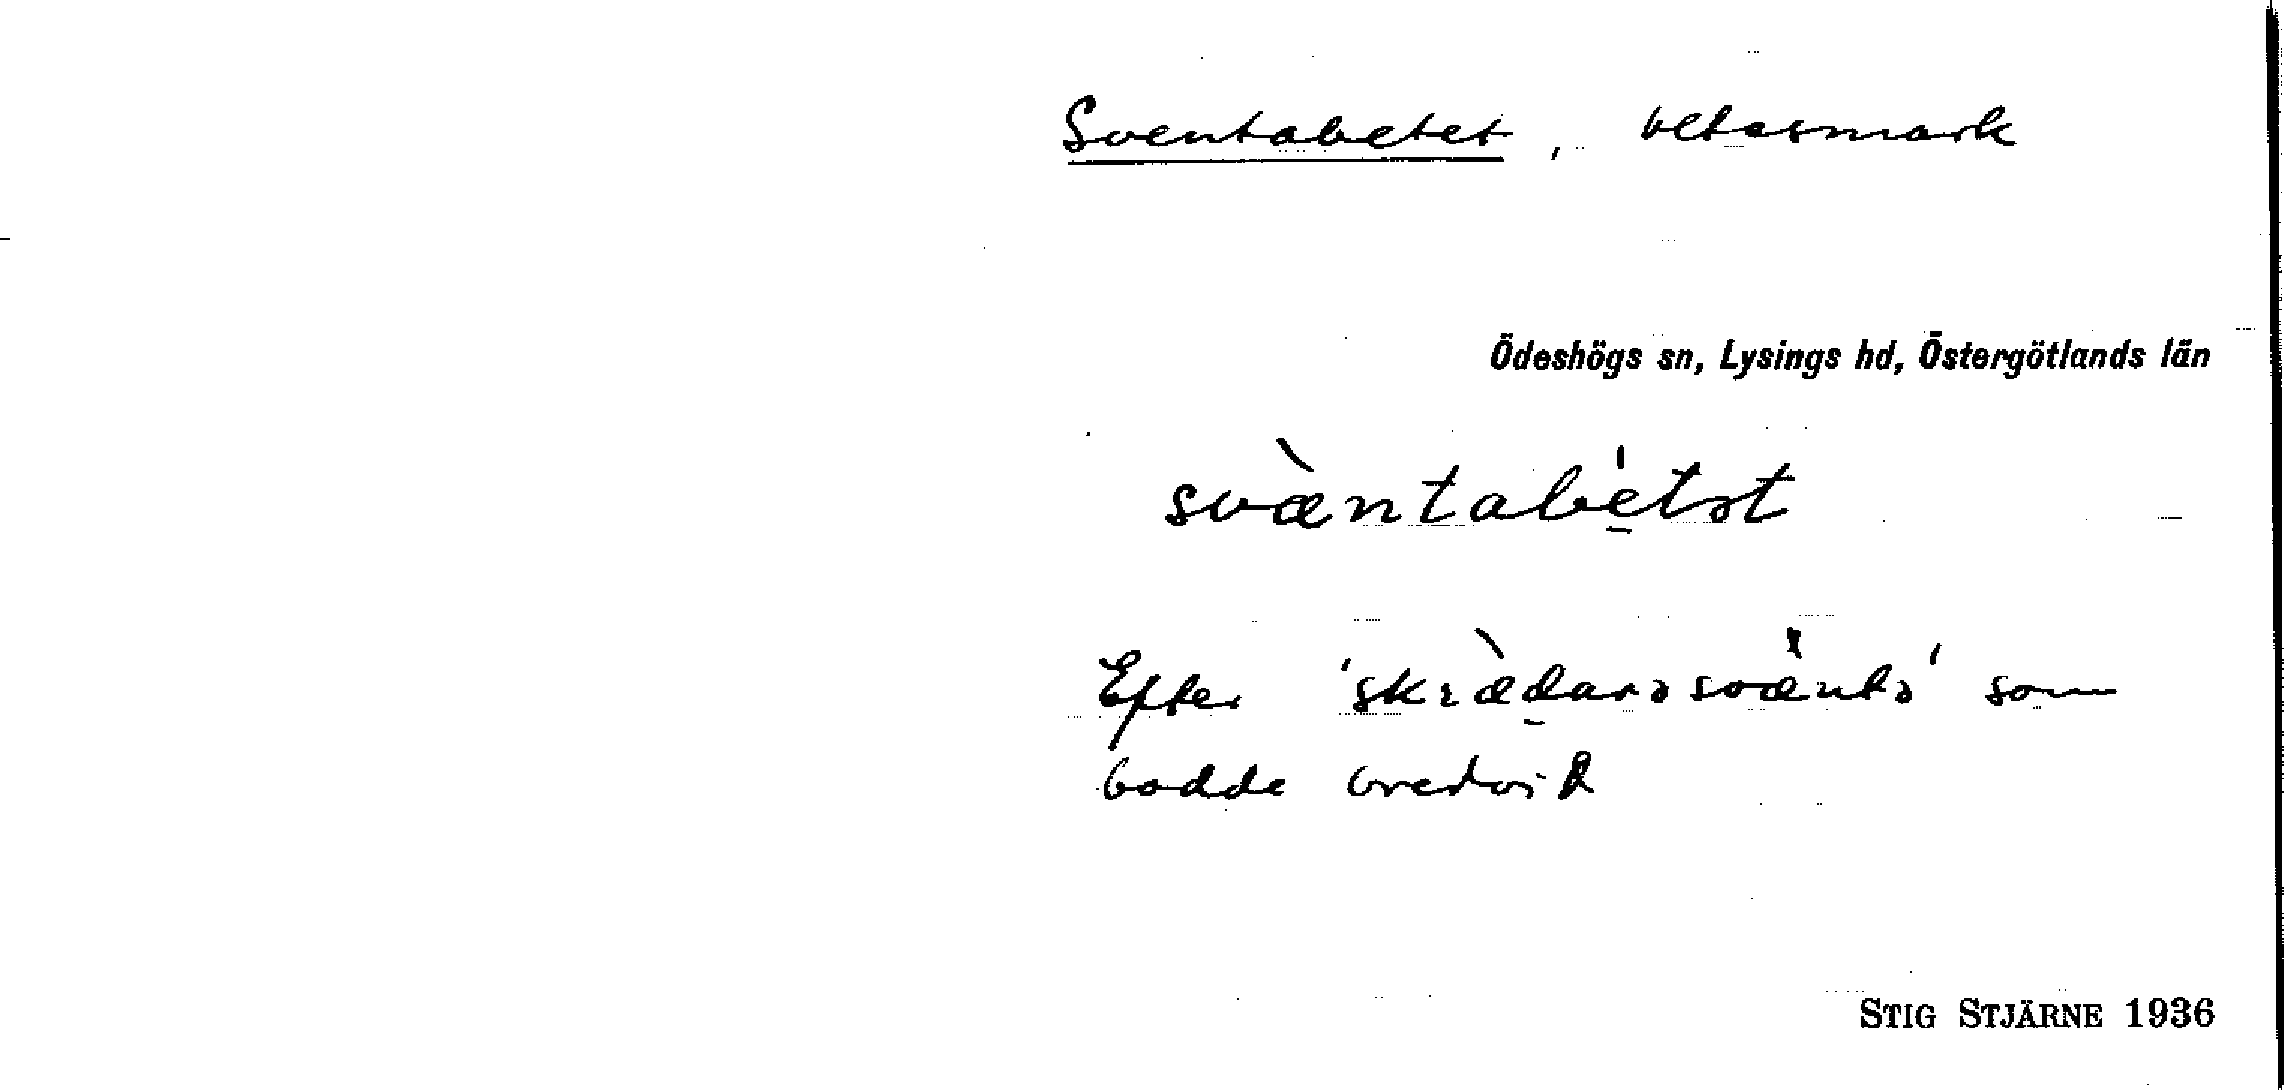 Sventabetet, betesmark
Ödeshögs sn, Lysings hd, Östergötlands län
svæ̀ntabe̠̍tət
Efter 'skræ̀d̠arəsvæ̀ntə' som
bodde bredvid
STIG STJÄRNE 1936